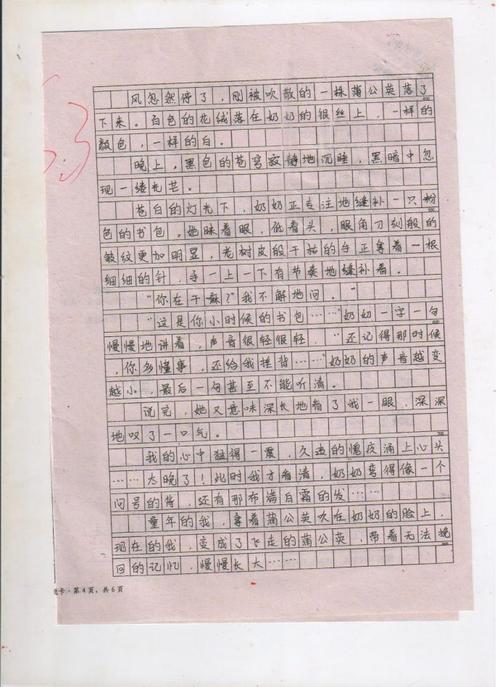 风忽然停了，刚被吹散的一株蒲公英落了
下来。白色的花绒落在奶奶的银丝上，一样的
颜色，一样的白。
晚上，黑色的苍穹寂静地沉睡，黑暗中忽
现一缕光芒。
苍白的灯光下，奶奶正专注地缝补一只粉
色的书包。她眯着眼，低着头，眼角刀刻般的
皱纹更加明显，老树皮般干枯的手正拿着一根
细细的针，手一上一下有节奏地缝补着。
“你在干嘛？”我不解地问。
“这是你小时候的书包……”奶奶一字一句
慢慢地讲着，声音很轻很轻，“还记得那时候
，你多懂事，还给我捶背……”奶奶的声音越变
越小，最后一句甚至不能听清。
说完，她又意味深长地看了我一眼，深深
地叹了一口气。
我的心中猛得一震，久违的愧疚涌上心头
……太晚了！此时我才看清，奶奶弯得像一个
问号的背，还有那布满白霜的发……
童年的我，拿着蒲公英吹在奶奶的脸上，
现在的我，变成了飞走的蒲公英，带着无法挽
回的记忆，慢慢长大……
卡·第4页，共6页